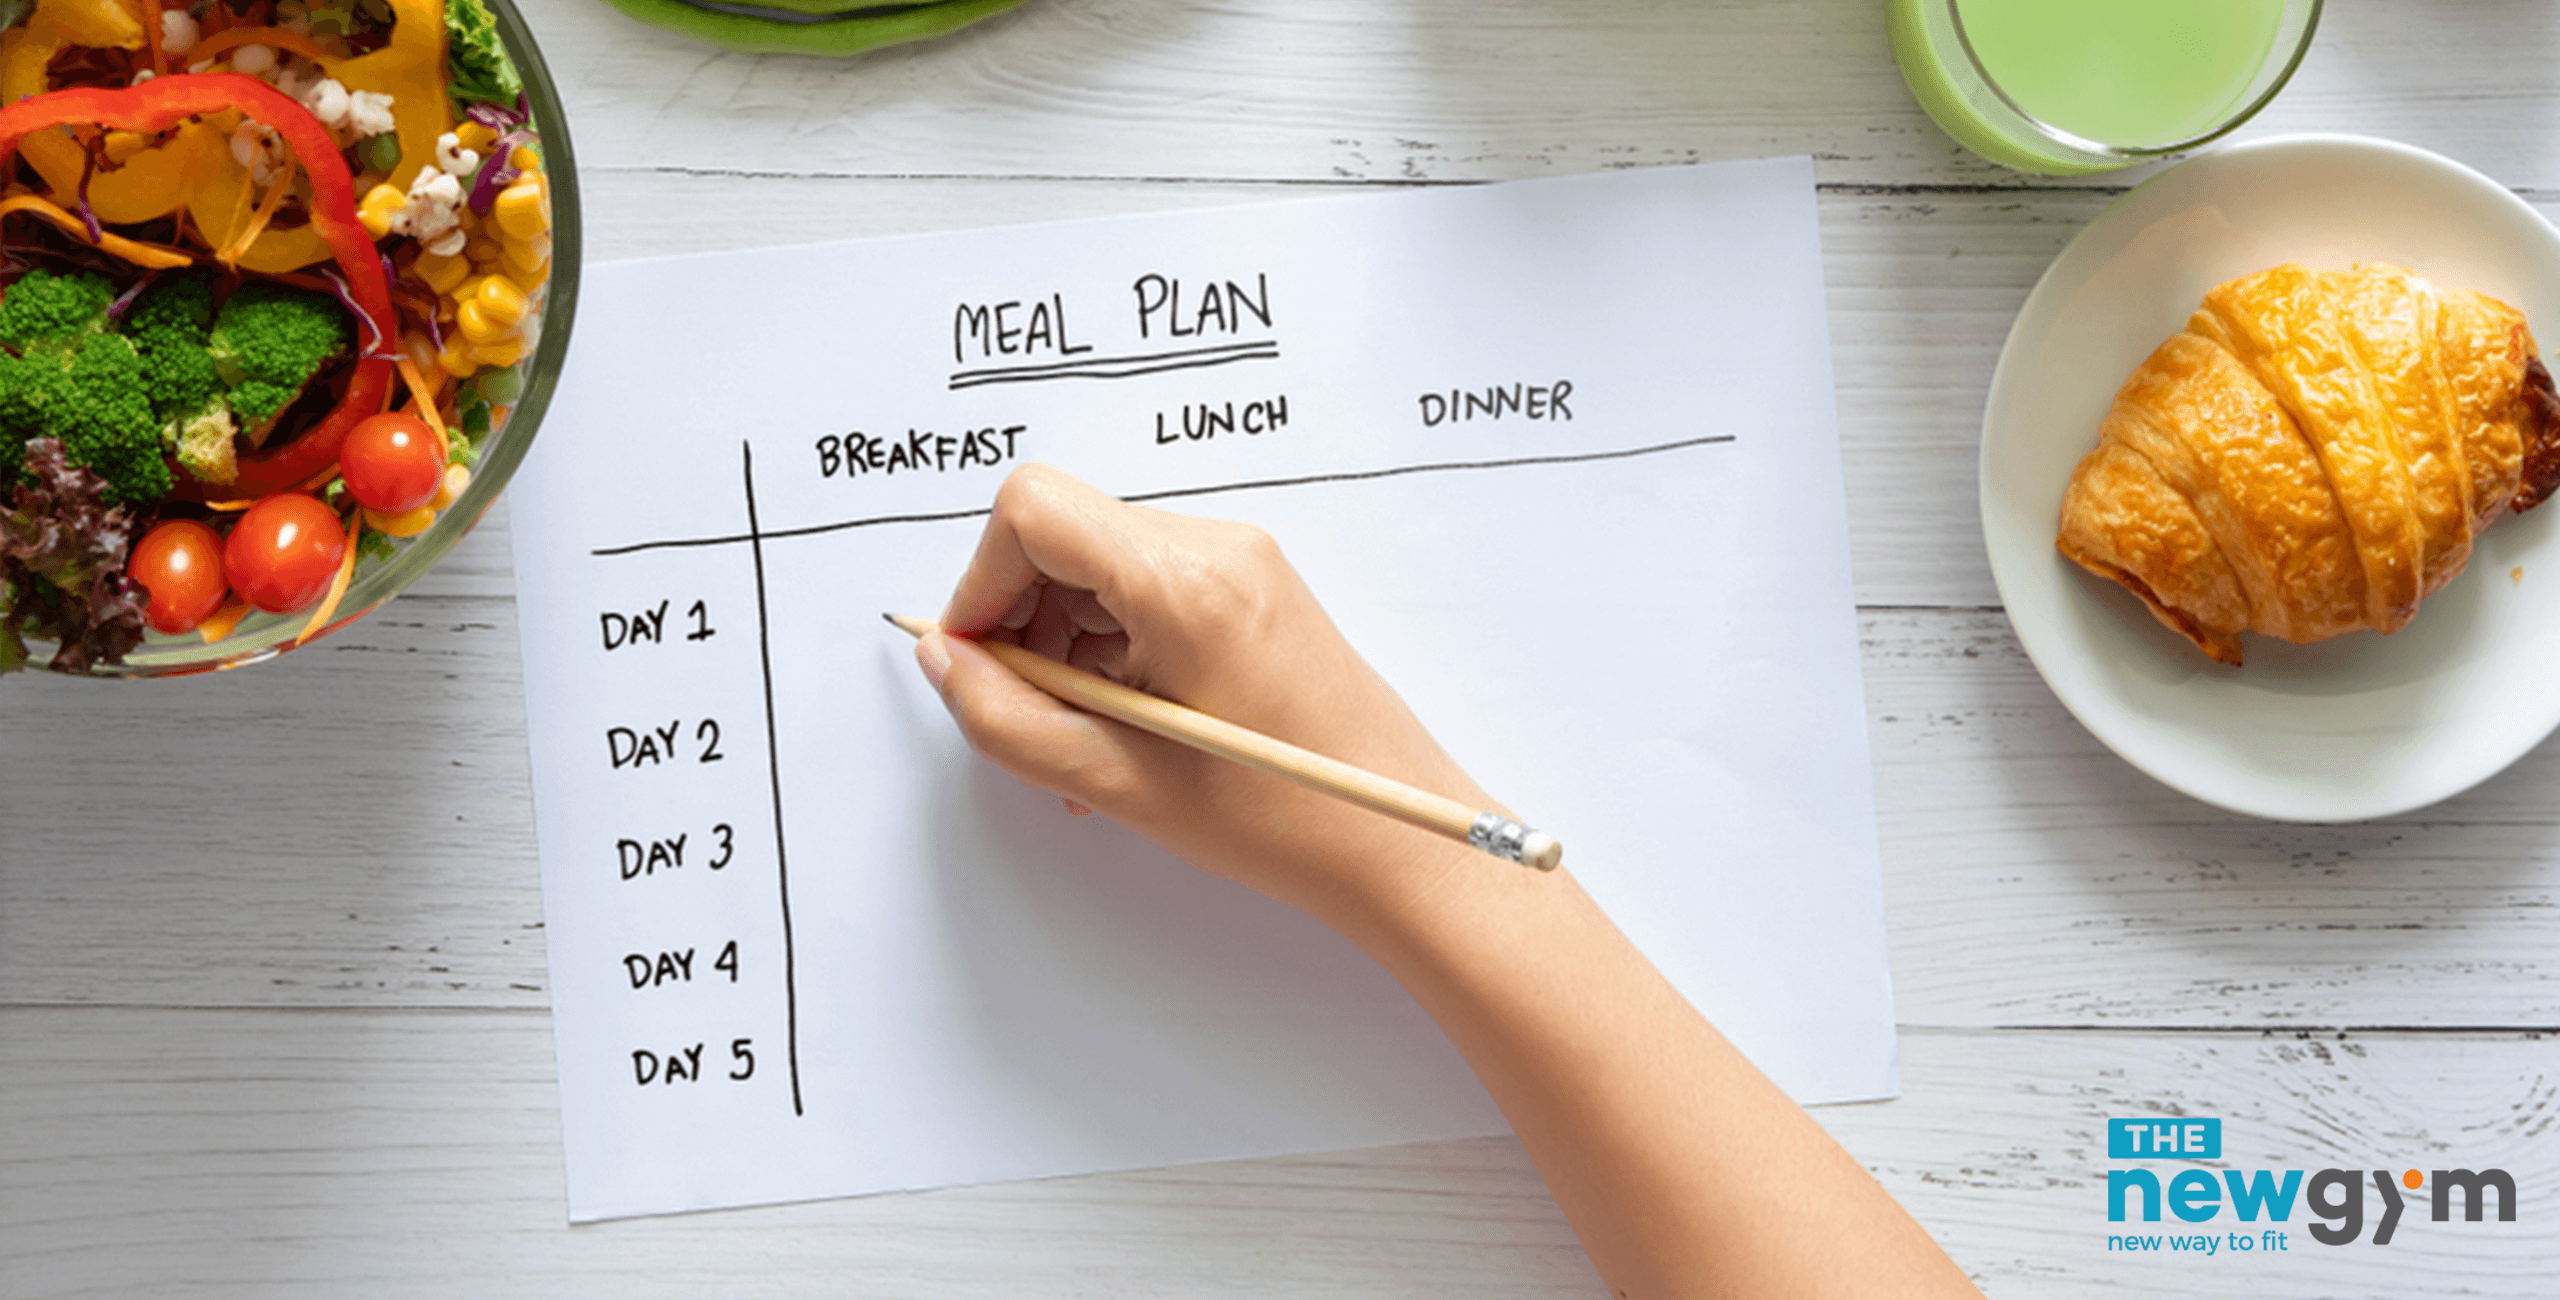 MEAL PLAN
BREAKFAST LUNCH DINNER
DAY 1
DAY 2
DAY 3
DAY 4
DAY 5
THE
newgym
new way to fit